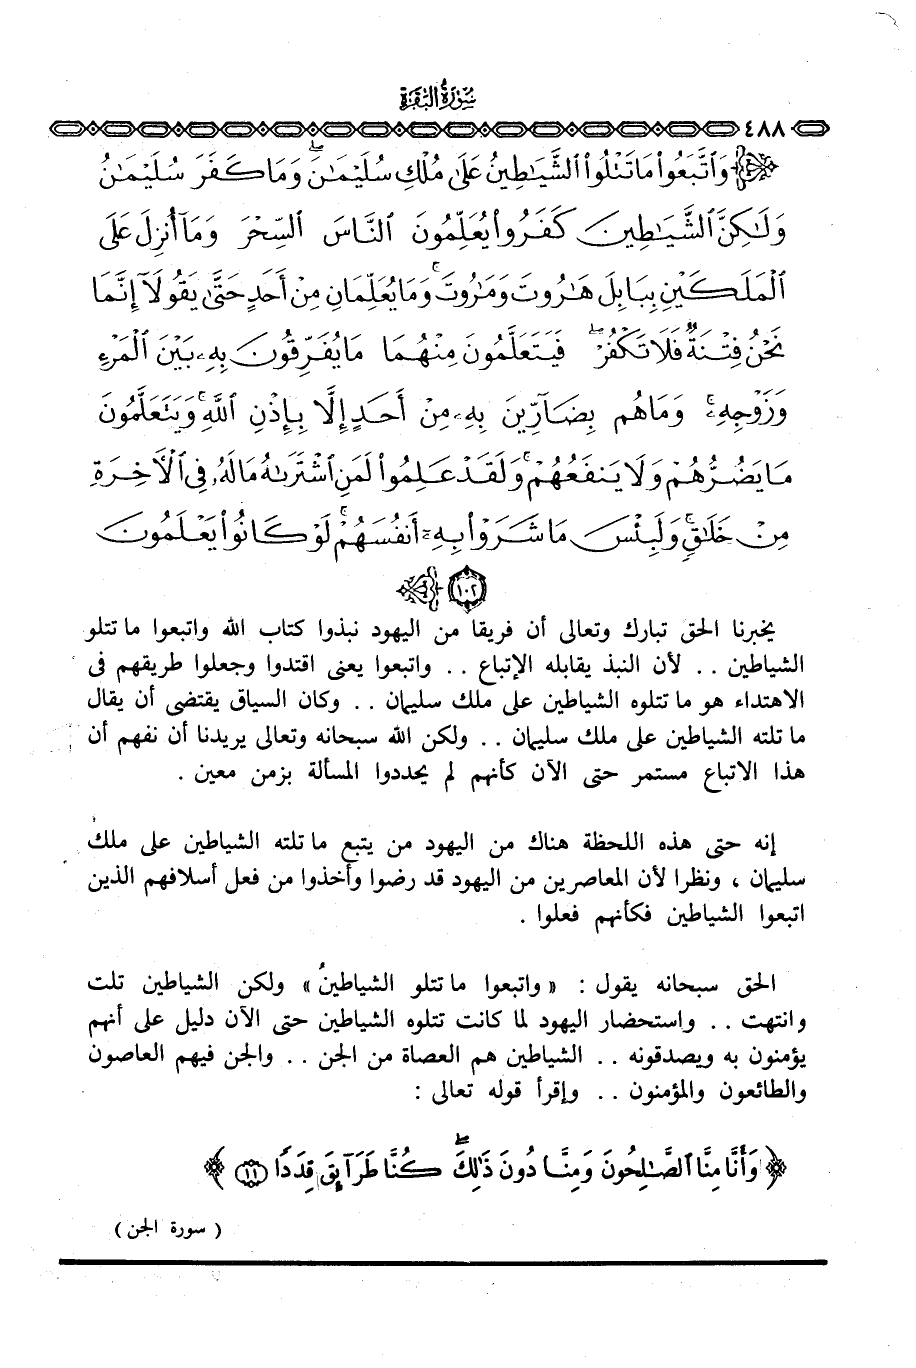 سُورَةُ البَقَرَةِ
٤٨٨
وَٱتَّبَعُوا۟ مَا تَتْلُوا۟ ٱلشَّيَـٰطِينُ عَلَىٰ مُلْكِ سُلَيْمَـٰنَ ۖ وَمَا كَفَرَ سُلَيْمَـٰنُ
وَلَـٰكِنَّ ٱلشَّيَـٰطِينَ كَفَرُوا۟ يُعَلِّمُونَ ٱلنَّاسَ ٱلسِّحْرَ وَمَآ أُنزِلَ عَلَى
ٱلْمَلَكَيْنِ بِبَابِلَ هَـٰرُوتَ وَمَـٰرُوتَ ۚ وَمَا يُعَلِّمَانِ مِنْ أَحَدٍ حَتَّىٰ يَقُولَآ إِنَّمَا
نَحْنُ فِتْنَةٌ فَلَا تَكْفُرْ ۖ فَيَتَعَلَّمُونَ مِنْهُمَا مَا يُفَرِّقُونَ بِهِۦ بَيْنَ ٱلْمَرْءِ
وَزَوْجِهِۦ ۚ وَمَا هُم بِضَآرِّينَ بِهِۦ مِنْ أَحَدٍ إِلَّا بِإِذْنِ ٱللَّهِ ۚ وَيَتَعَلَّمُونَ
مَا يَضُرُّهُمْ وَلَا يَنفَعُهُمْ ۚ وَلَقَدْ عَلِمُوا۟ لَمَنِ ٱشْتَرَىٰهُ مَا لَهُۥ فِى ٱلْـَٔاخِرَةِ
مِنْ خَلَـٰقٍ ۚ وَلَبِئْسَ مَا شَرَوْا۟ بِهِۦٓ أَنفُسَهُمْ ۚ لَوْ كَانُوا۟ يَعْلَمُونَ
١٠٢
يخبرنا الحق تبارك وتعالى أن فريقا من اليهود نبذوا كتاب الله واتبعوا ما تتلو
الشياطين . . لأن النبذ يقابله الإتباع . . واتبعوا يعنى اقتدوا وجعلوا طريقهم فى
الاهتداء هو ما تتلوه الشياطين على ملك سليمان . . وكان السياق يقتضى أن يقال
ما تلته الشياطين على ملك سليمان . . ولكن الله سبحانه وتعالى يريدنا أن نفهم أن
هذا الاتباع مستمر حتى الآن كأنهم لم يحددوا المسألة بزمن معين .
إنه حتى هذه اللحظة هناك من اليهود من يتبع ما تلته الشياطين على ملك
سليمان ، ونظرا لأن المعاصرين من اليهود قد رضوا وأخذوا من فعل أسلافهم الذين
اتبعوا الشياطين فكأنهم فعلوا .
الحق سبحانه يقول : « واتبعوا ما تتلو الشياطينُ » ولكن الشياطين تلت
وانتهت . . واستحضار اليهود لما كانت تتلوه الشياطين حتى الآن دليل على أنهم
يؤمنون به ويصدقونه . . الشياطين هم العصاة من الجن . . والجن فيهم العاصون
والطائعون والمؤمنون . . وإقرأ قوله تعالى :
﴿ وَأَنَّا مِنَّا ٱلصَّـٰلِحُونَ وَمِنَّا دُونَ ذَٰلِكَ ۖ كُنَّا طَرَآئِقَ قِدَدًا ١١ ﴾
( سورة الجن )